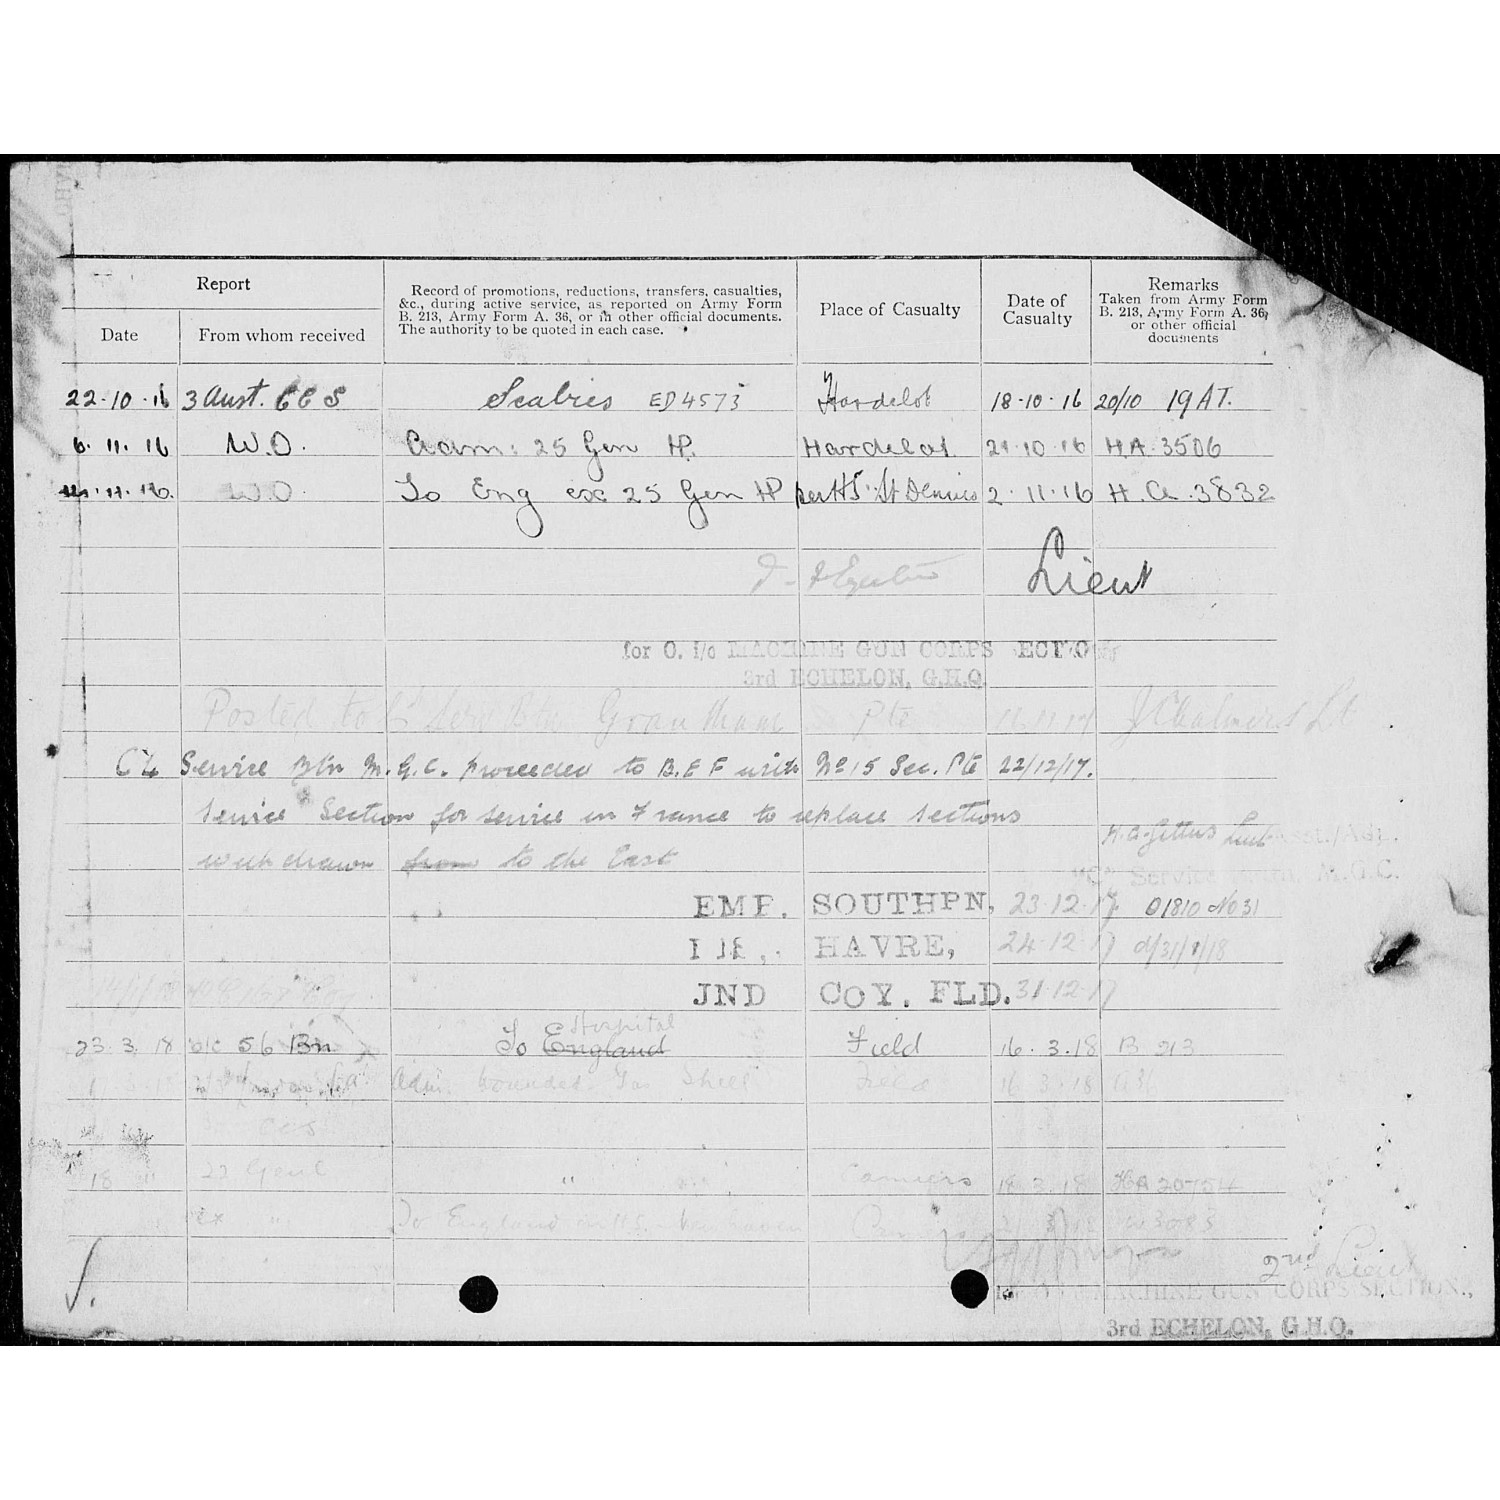 Report
Record of promotions, reductions, transfers, casualties, &c., during active service, as reported on Army Form B. 213, Army Form A. 36, or in other official documents. The authority to be quoted in each case.
Place of Casualty
Date of Casualty
Remarks
Taken from Army Form B. 213, Army Form A. 36, or other official documents
Date
From whom received
22·10·16 3 Aust. C C S Scabies ED 4573 Hardelot 18·10·16 20/10 19 AT.
6. 11. 16 W.O. Adm: 25 Gen H. Hardelot 21·10·16 H.A. 3506
W.O To Eng ex 25 Gen H per HS St Dennis 2·11·16 H.A. 3832
Lieut
for O. i/c MACHINE GUN CORPS SECTION
3rd ECHELON, G.H.Q.
Posted to Serv Btn Grantham Pte Lt
Service Btn M.G.C. proceeded to B.E F with No 15 Sec. Pte 22/12/17.
Service Section for service in France to replace sections
withdrawn from to the East
Lieut Asst./Adj.
"C" Service M.G.C.
EMP. SOUTHPN, 23·12·17 01810 No 31
HAVRE, 24·12·17 d/31/1/18
JND COY. FLD. 31·12·17
23 3 18 o/c 56 Bn To England Hospital Field 16·3·18 B 213
Adm wounded Gas Shell Field 16 3 18
CCS
18 22 Genl " " Camiers 18 3 18 HA 20754
ex " To England Newhaven Camiers 3083
2nd Lieut
MACHINE GUN CORPS SECTION.,
3rd ECHELON, G.H.Q.